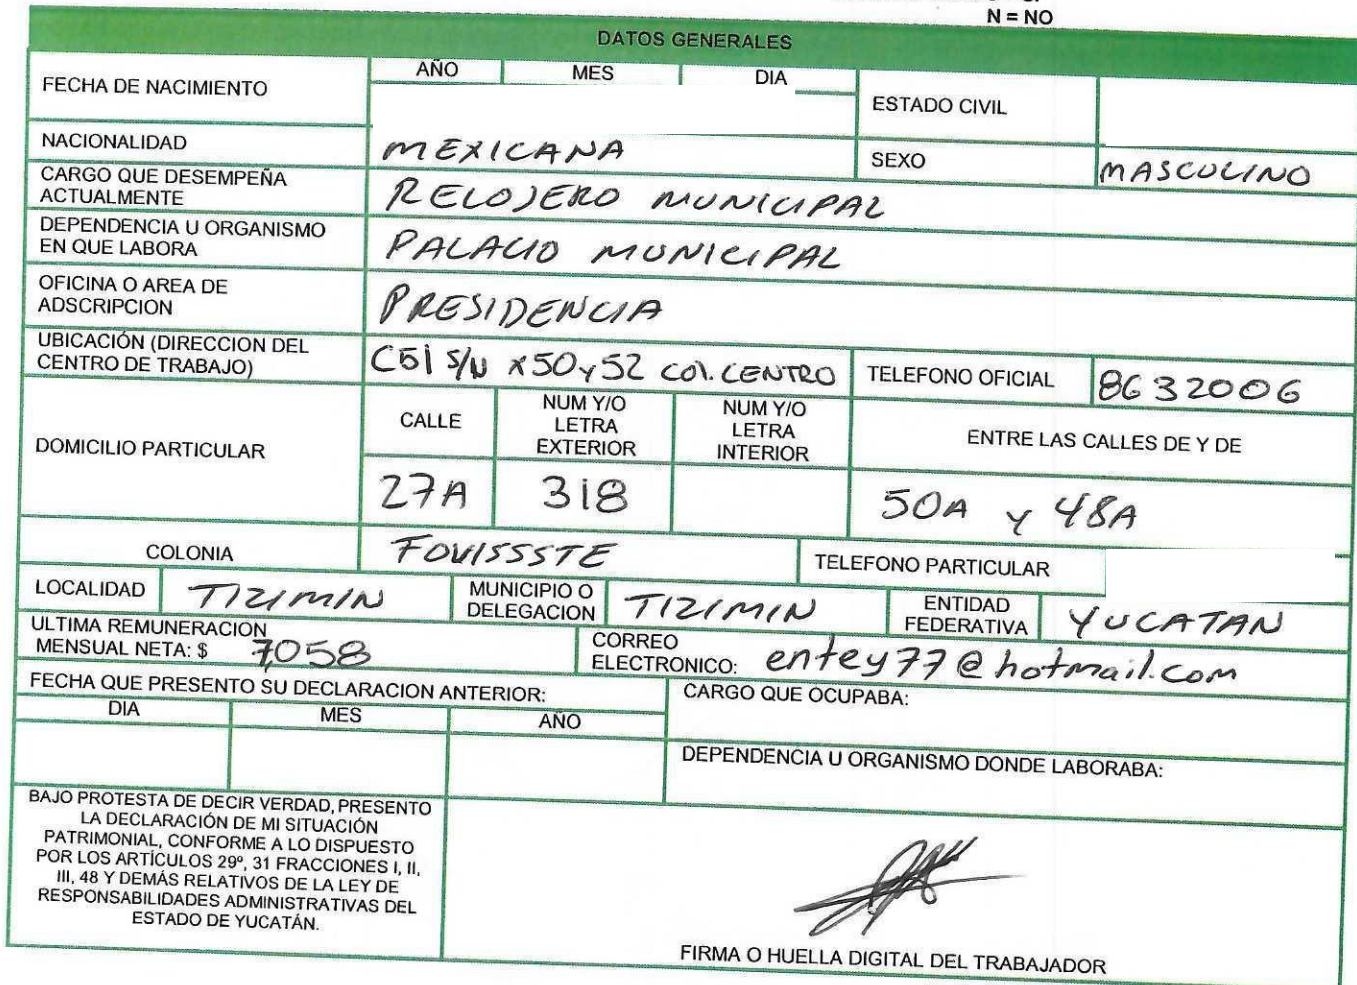 N = NO
DATOS GENERALES
FECHA DE NACIMIENTO
AÑO MES DIA
ESTADO CIVIL
NACIONALIDAD MEXICANA SEXO MASCULINO
CARGO QUE DESEMPEÑA
ACTUALMENTE
RELOJERO MUNICIPAL
DEPENDENCIA U ORGANISMO
EN QUE LABORA
PALACIO MUNICIPAL
OFICINA O AREA DE
ADSCRIPCION
PRESIDENCIA
UBICACIÓN (DIRECCION DEL
CENTRO DE TRABAJO)
C51 S/N x50 y 52 COL. CENTRO
TELEFONO OFICIAL 8632006
DOMICILIO PARTICULAR
CALLE
NUM Y/O
LETRA
EXTERIOR
NUM Y/O
LETRA
INTERIOR
ENTRE LAS CALLES DE Y DE
27A 318 50A y 48A
COLONIA FOVISSSTE TELEFONO PARTICULAR
LOCALIDAD TIZIMIN
MUNICIPIO O
DELEGACION
TIZIMIN
ENTIDAD
FEDERATIVA
YUCATAN
ULTIMA REMUNERACION
MENSUAL NETA: $ 7,058
CORREO
ELECTRONICO: entey77@hotmail.com
FECHA QUE PRESENTO SU DECLARACION ANTERIOR:
DIA MES AÑO
CARGO QUE OCUPABA:
DEPENDENCIA U ORGANISMO DONDE LABORABA:
BAJO PROTESTA DE DECIR VERDAD, PRESENTO
LA DECLARACIÓN DE MI SITUACIÓN
PATRIMONIAL, CONFORME A LO DISPUESTO
POR LOS ARTÍCULOS 29º, 31 FRACCIONES I, II,
III, 48 Y DEMÁS RELATIVOS DE LA LEY DE
RESPONSABILIDADES ADMINISTRATIVAS DEL
ESTADO DE YUCATÁN.
FIRMA O HUELLA DIGITAL DEL TRABAJADOR